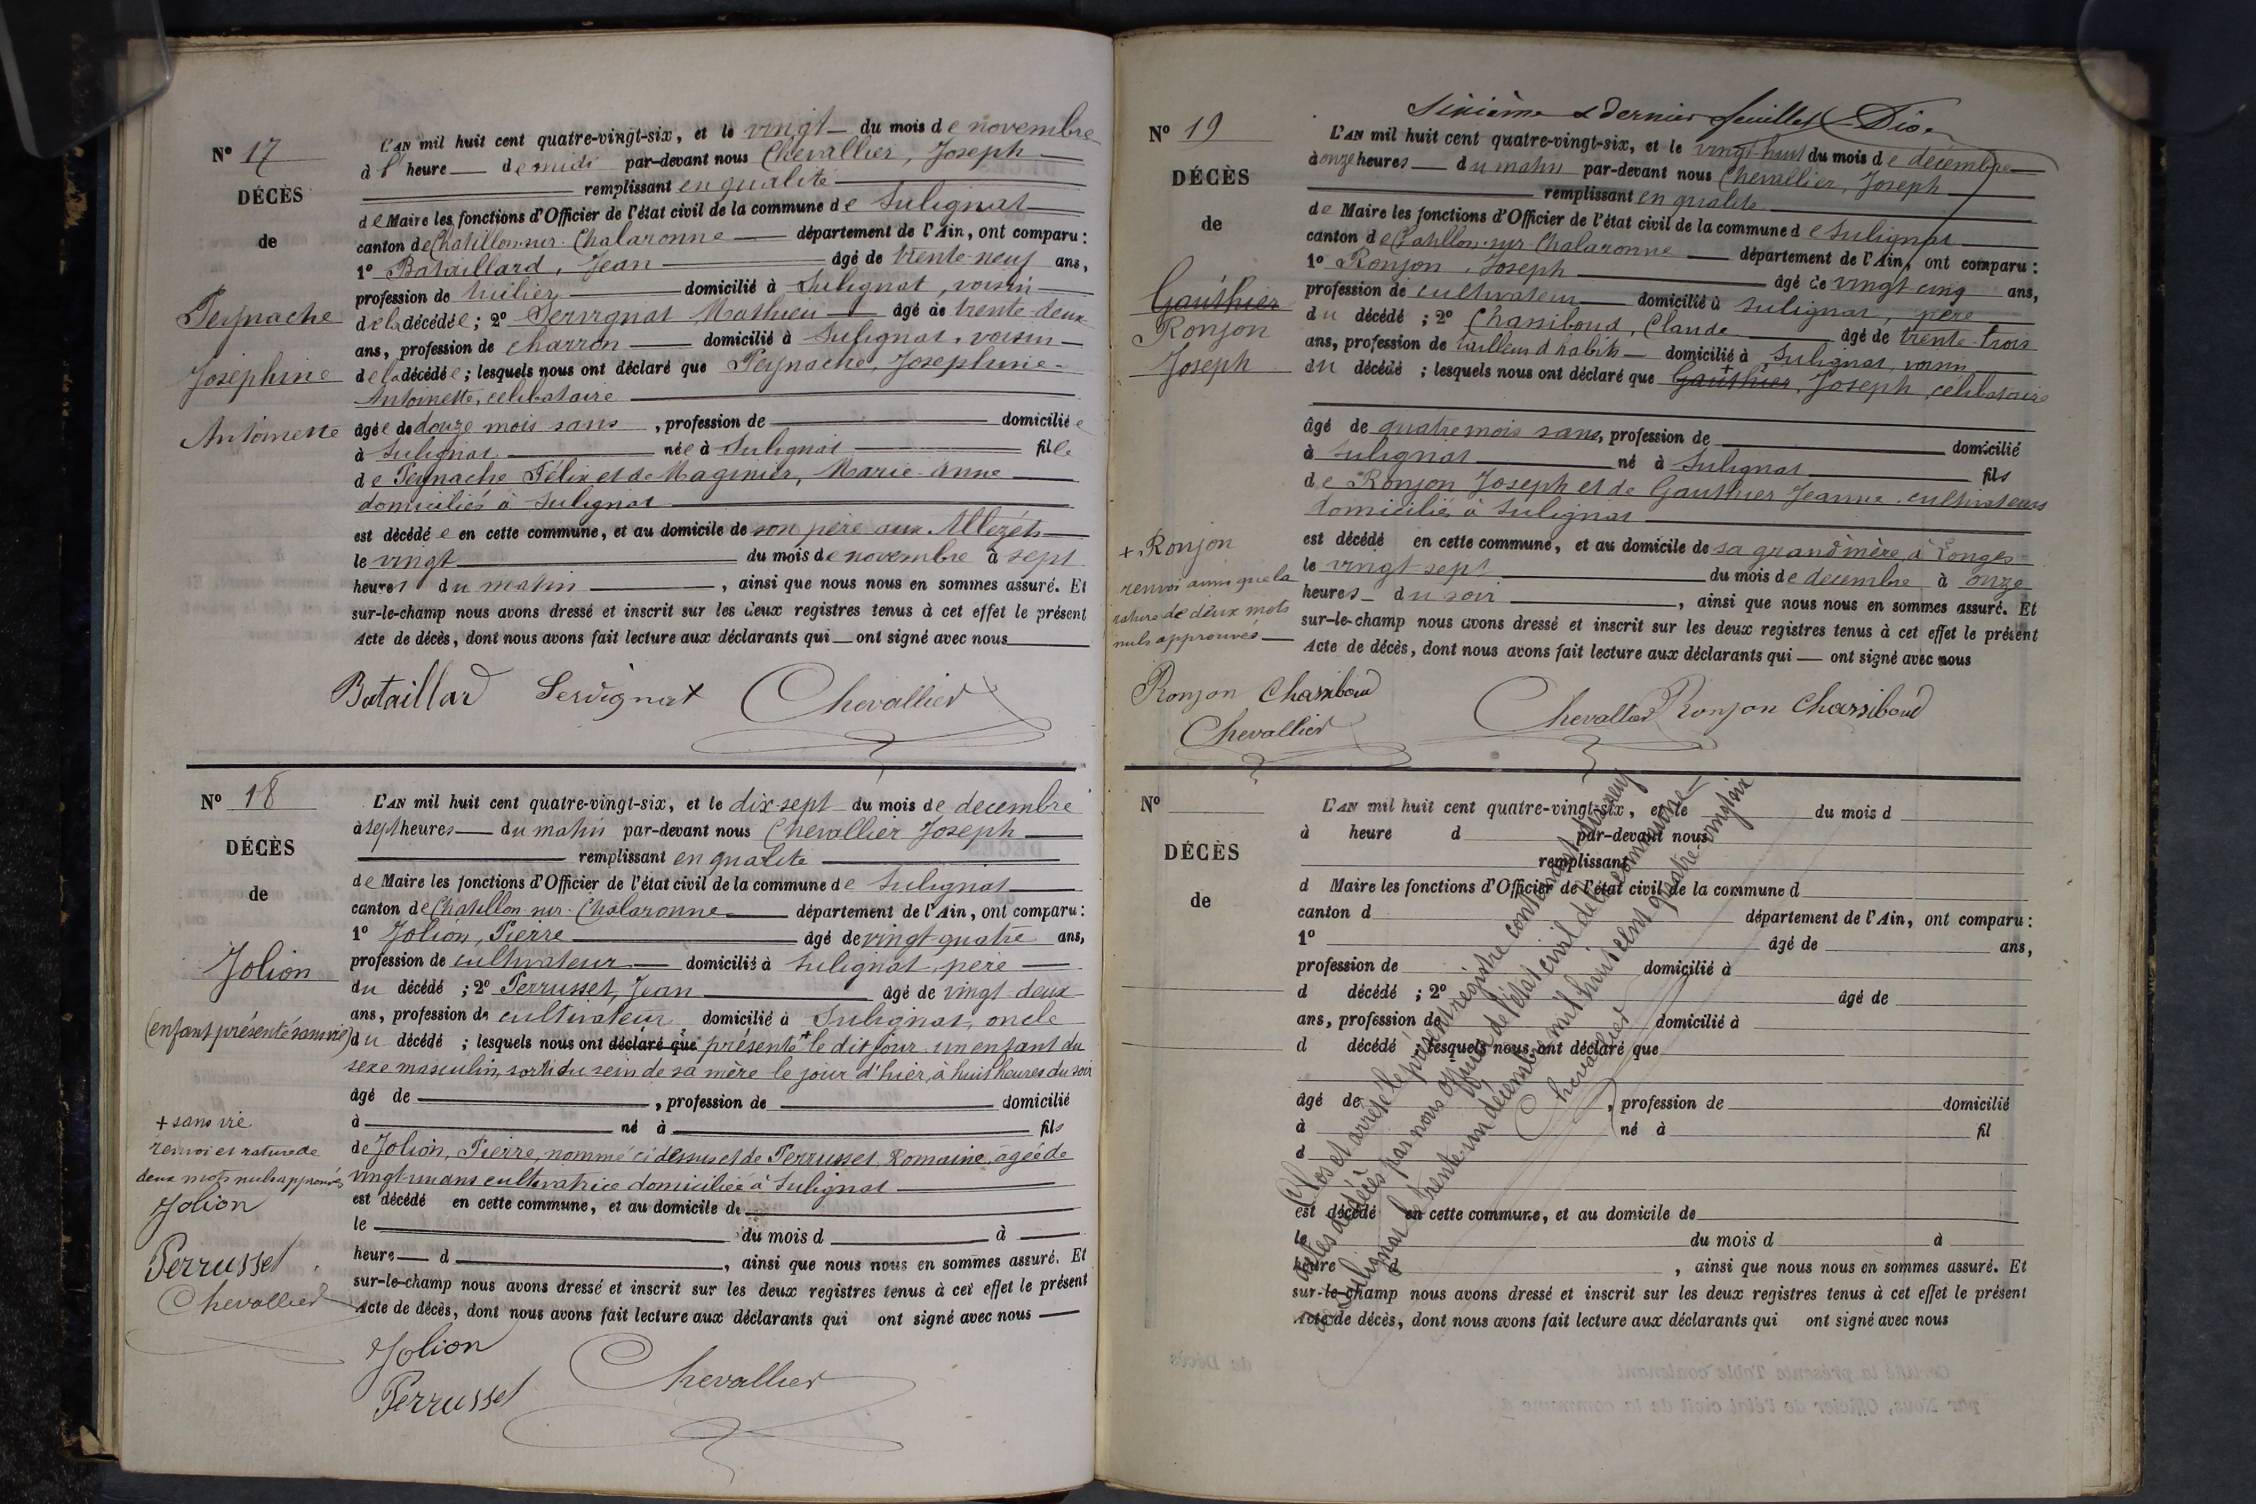 N° 17
DÉCÈS
de
Peynache
Joséphine
Antoinette
L'AN mil huit cent quatre-vingt-six, et le vingt du mois de novembre
à l'heure de midi par-devant nous Chevallier, Joseph
remplissant en qualité
de Maire les fonctions d'Officier de l'état civil de la commune de Sulignat
canton de Chatillon-sur-Chalaronne département de l'Ain, ont comparu :
1° Bataillard, Jean âgé de trente-neuf ans,
profession de tuilier domicilié à Sulignat, voisin
de la décédée ; 2° Servignat Mathieu âgé de trente-deux
ans, profession de charron domicilié à Sulignat, voisin
de la décédée ; lesquels nous ont déclaré que Peynache, Josephine-
Antoinette, célibataire
âgée de douze mois sans , profession de domiciliée
à Sulignat née à Sulignat fille
de Peynache Félix et de Maginier, Marie-Anne
domiciliés à Sulignat
est décédée en cette commune, et au domicile de son père aux Allezéts
le vingt du mois de novembre à sept
heures du matin , ainsi que nous nous en sommes assuré. Et
sur-le-champ nous avons dressé et inscrit sur les deux registres tenus à cet effet le présent
Acte de décès, dont nous avons fait lecture aux déclarants qui ont signé avec nous
Bataillard Servignat Chevallier
N° 18
DÉCÈS
de
Jolion
(enfant présenté sans vie)
L'AN mil huit cent quatre-vingt-six, et le dix-sept du mois de decembre
à sept heures du matin par-devant nous Chevallier Joseph
remplissant en qualité
de Maire les fonctions d'Officier de l'état civil de la commune de Sulignat
canton de Chatillon-sur-Chalaronne département de l'Ain, ont comparu :
1° Jolion, Pierre âgé de vingt-quatre ans,
profession de cultivateur domicilié à Sulignat, père
du décédé ; 2° Perrusset, Jean âgé de vingt-deux
ans, profession de cultivateur domicilié à Sulignat, oncle
du décédé ; lesquels nous ont déclaré que présenté + le dit jour un enfant du
sexe masculin, sorti du sein de sa mère le jour d'hier, à huit heures du soir
âgé de , profession de domicilié
à né à fils
de Jolion, Pierre, nommé ci dessus et de Perrusset, Romaine, agée de
vingt-un ans cultivatrice domiciliée à Sulignat
est décédé en cette commune, et au domicile de
le du mois d à
heure d , ainsi que nous nous en sommes assuré. Et
sur-le-champ nous avons dressé et inscrit sur les deux registres tenus à cet effet le présent
Acte de décès, dont nous avons fait lecture aux déclarants qui ont signé avec nous
+ sans vie
renvoi et rature de
deux mots nuls approuvés
Jolion
Perrusset
Chevallier
Jolion
Perrusset
Chevallier
Sixième & dernier feuillet
N° 19
DÉCÈS
de
Gauthier
Ronjon
Joseph
L'AN mil huit cent quatre-vingt-six, et le vingt-huit du mois de décembre
à onze heures du matin par-devant nous Chevallier, Joseph
remplissant en qualité
de Maire les fonctions d'Officier de l'état civil de la commune de Sulignat
canton de Chatillon-sur-Chalaronne département de l'Ain, ont comparu :
1° Ronjon, Joseph âgé de vingt cinq ans,
profession de cultivateur domicilié à Sulignat, père
du décédé ; 2° Chassiboud, Claude âgé de trente-trois
ans, profession de tailleur d'habits domicilié à Sulignat, voisin
du décédé ; lesquels nous ont déclaré que + Gauthier, Joseph, célibataire
âgé de quatre mois sans, profession de domicilié
à Sulignat né à Sulignat fils
de Ronjon Joseph et de Gauthier Jeanne, cultivateurs
domiciliés à Sulignat
est décédé en cette commune, et au domicile de sa grand'mère, à Longes
le vingt-sept du mois de decembre à onze
heures du soir , ainsi que nous nous en sommes assuré. Et
sur-le-champ nous avons dressé et inscrit sur les deux registres tenus à cet effet le présent
Acte de décès, dont nous avons fait lecture aux déclarants qui ont signé avec nous
+ Ronjon
renvoi ainsi que la
rature de deux mots
nuls approuvés
Ronjon Chassiboud
Chevallier
Chevallier Ronjon Chassiboud
N°
DÉCÈS
de
L'AN mil huit cent quatre-vingt-six, et le du mois d
à heure d par-devant nous
remplissant
d Maire les fonctions d'Officier de l'état civil de la commune d
canton d département de l'Ain, ont comparu :
1° âgé de ans,
profession de domicilié à
d décédé ; 2° âgé de
ans, profession de domicilié à
d décédé ; lesquels nous ont déclaré que
âgé de , profession de domicilié
à né à fil
d
est décédé en cette commune, et au domicile de
le du mois d à
heure d , ainsi que nous nous en sommes assuré. Et
sur-le-champ nous avons dressé et inscrit sur les deux registres tenus à cet effet le présent
Acte de décès, dont nous avons fait lecture aux déclarants qui ont signé avec nous
Clos et arrêté le présent registre contenant dix neuf
actes de décès par nous officier de l'état civil de la commune
de Sulignat le trente-un décembre mil huit cent quatre-vingt-six
Chevallier